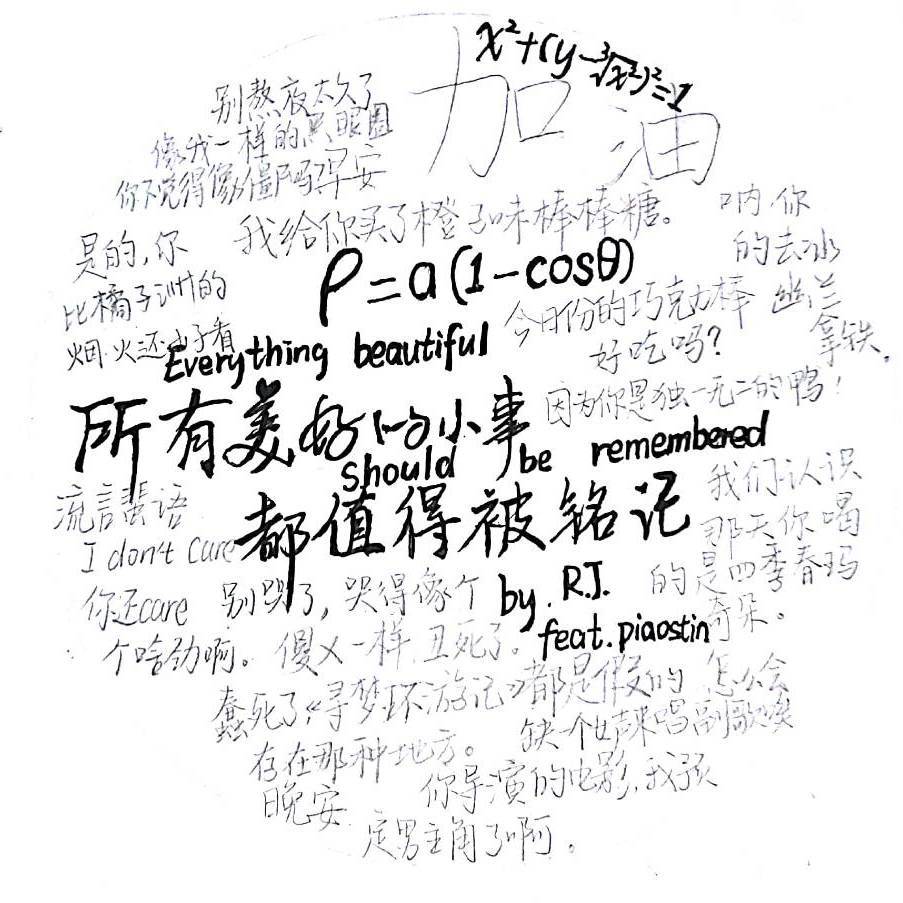 x²+(y-∛x²)²=1
加油
别熬夜太久了
像我一样的黑眼圈
你不觉得像僵尸吗早安
我给你买了橙子味棒棒糖。
呐,你
的去冰
幽兰
拿铁。
是的,你
比橘子洲的
烟火还好看
ρ=a(1-cosθ)
今日份的巧克力棒
好吃吗?
Everything beautiful
因为你是独一无二的鸭!
所有美好的小事
should be remembered
都值得被铭记
流言蜚语
I don't care
你还care
个啥劲啊。
我们认识
那天你喝
的是四季春玛
奇朵。
别哭了,哭得像个
傻X一样,丑死了。
by. R.J.
feat. piaostin
蠢死了《寻梦环游记》都是假的 怎么会
存在那种地方。
晚安
缺一个来唱副歌唉
你导演的电影,我预
定男主角了啊。